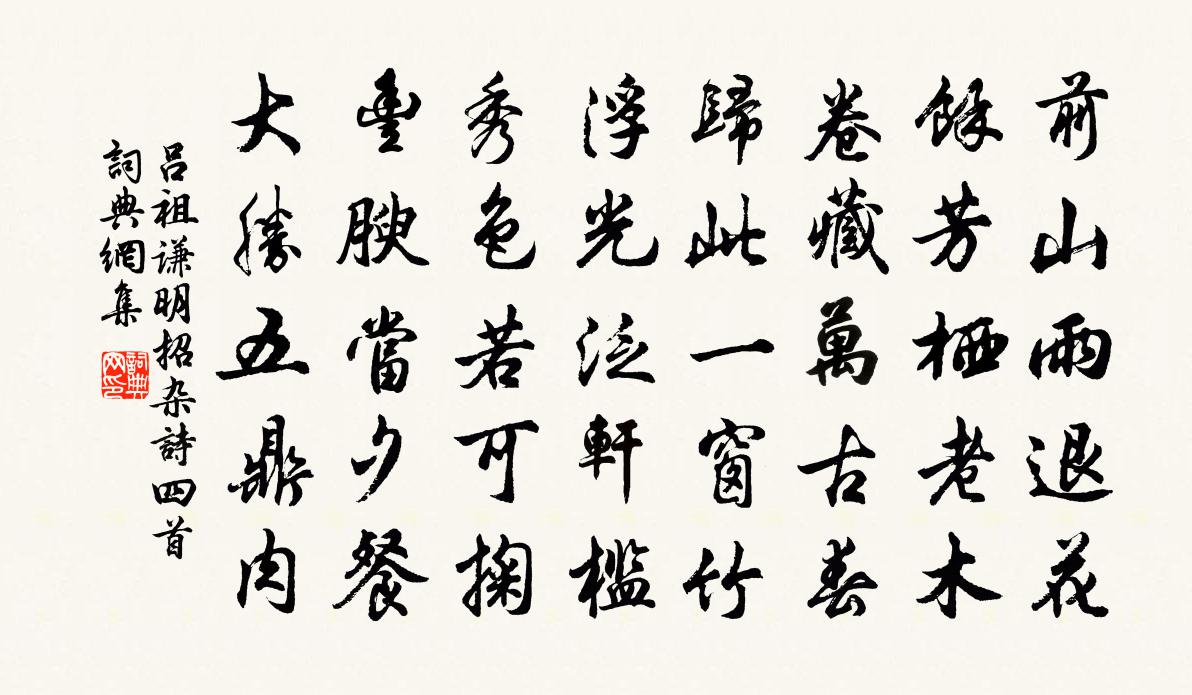 前山雨退花
餘芳栖老木
卷藏萬古春
歸此一窗竹
浮光泛軒檻
秀色若可掬
豊腴當夕餐
大勝五鼎肉
吕祖谦明招杂詩四首
詞典網集
詞典网印